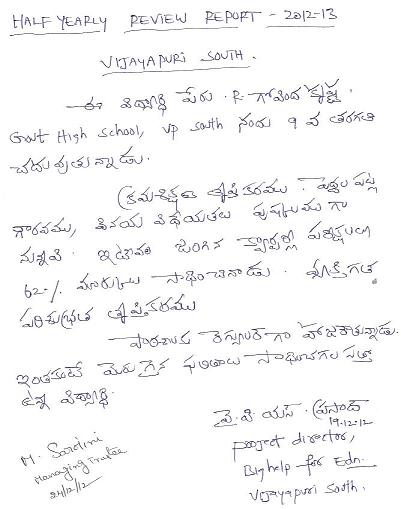 HALF YEARLY REVIEW REPORT - 2012-13
VIJAYAPURI SOUTH.
ఈ విద్యార్థి పేరు . R. గోవింద కృష్ణ.
Govt High school, VP South నందు 9 వ తరగతి
చదువుతున్నాడు.
క్రమశిక్షణ తృప్తికరము. పెద్దల పట్ల
గౌరవము, వినయ విధేయతలు పుష్కలముగా
వున్నవి. ఇటీవల జరిగిన క్వార్టర్లీ పరీక్షలలో
62% మార్కులు సాధించినాడు. వ్యక్తిగత
పరిశుభ్రత తృప్తికరము
పాఠశాలకు రెగ్యులర్ గా హాజరౌతున్నాడు.
ఇంతకంటే మెరుగైన ఫలితాలు సాధించగల సత్తా
ఉన్న విద్యార్థి.
వై.వి.యస్. ప్రసాద్
19-12-12
project director,
Bighelp for Edn.
Vijayapuri South.
M. Sardini
Managing Trustee
24/12/12